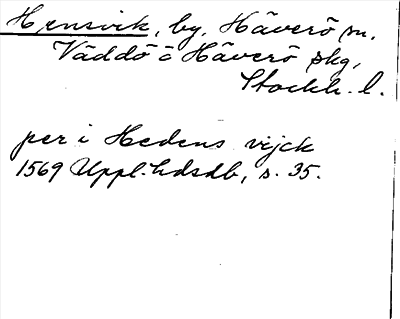 Hensvik, by, Häverö sn,
Väddö o Häverö skg,
Stockh. l.
per i Hedens vijck
1569 Uppl. hdsdb, s. 35.